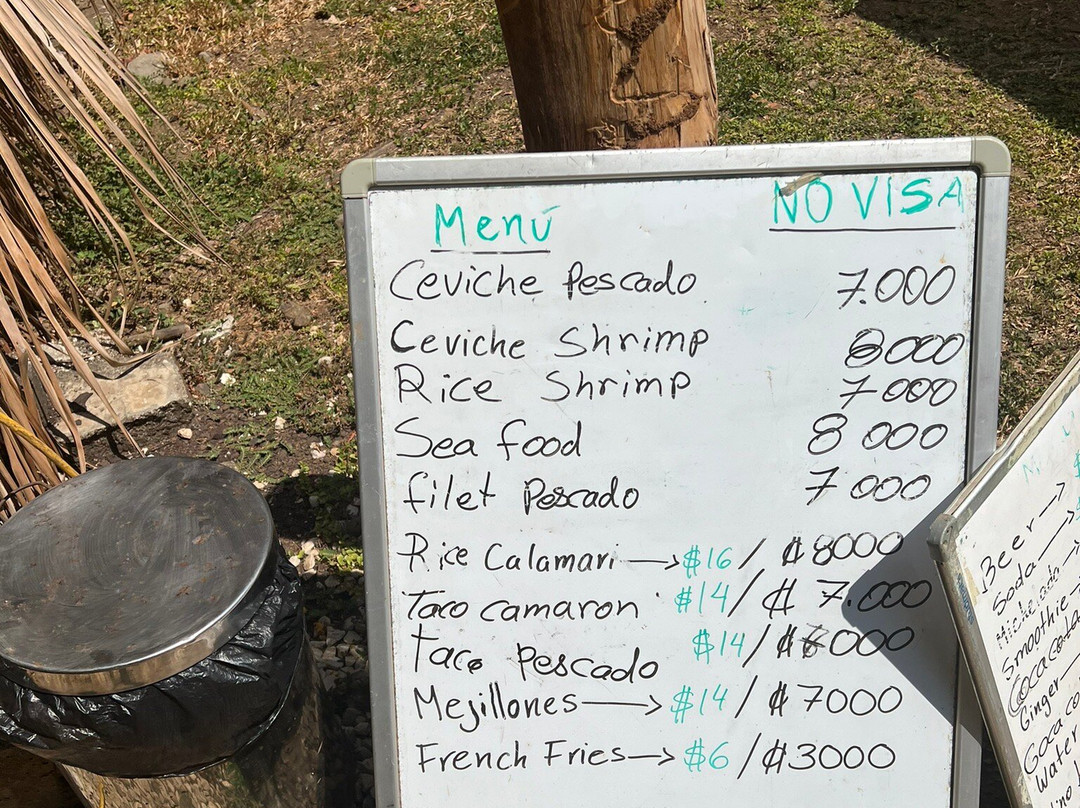 Menú
NO VISA
Ceviche Pescado 7.000
Ceviche Shrimp 8000
Rice Shrimp 7000
Sea food 8 000
filet Pescado 7 000
Rice Calamari → $16 / ₡8000
Taco camaron $14 / ₡ 7.000
Taco Pescado $14 / ₡6000
Mejillones → $14 / ₡7000
French Fries → $6 / ₡3000
Beer →
Soda
Smoothie
Coca cola
Ginger
Water